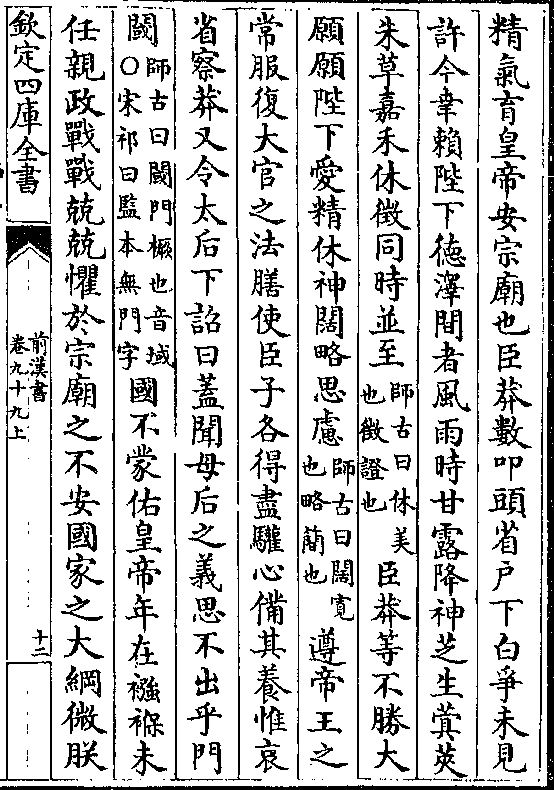 精氣育皇帝安宗廟也臣莽數叩頭省戶下白爭未見
許今幸賴陛下德澤間者風雨時甘露降神芝生蓂莢
朱草嘉禾休徵同時並至師古曰休美也徵證也臣莽等不勝大
願願陛下愛精休神闊略思慮師古曰闊寛也略簡也遵帝王之
常服復大官之法膳使臣子各得盡驩心備其養惟哀
省察莽又令太后下詔曰蓋聞母后之義思不出乎門
閾師古曰閾門橛也音域○宋祁曰監本無門字國不蒙佑皇帝年在襁褓未
任親政戰戰兢兢懼於宗廟之不安國家之大綱微朕
欽定四庫全書
前漢書
卷九十九上
十二